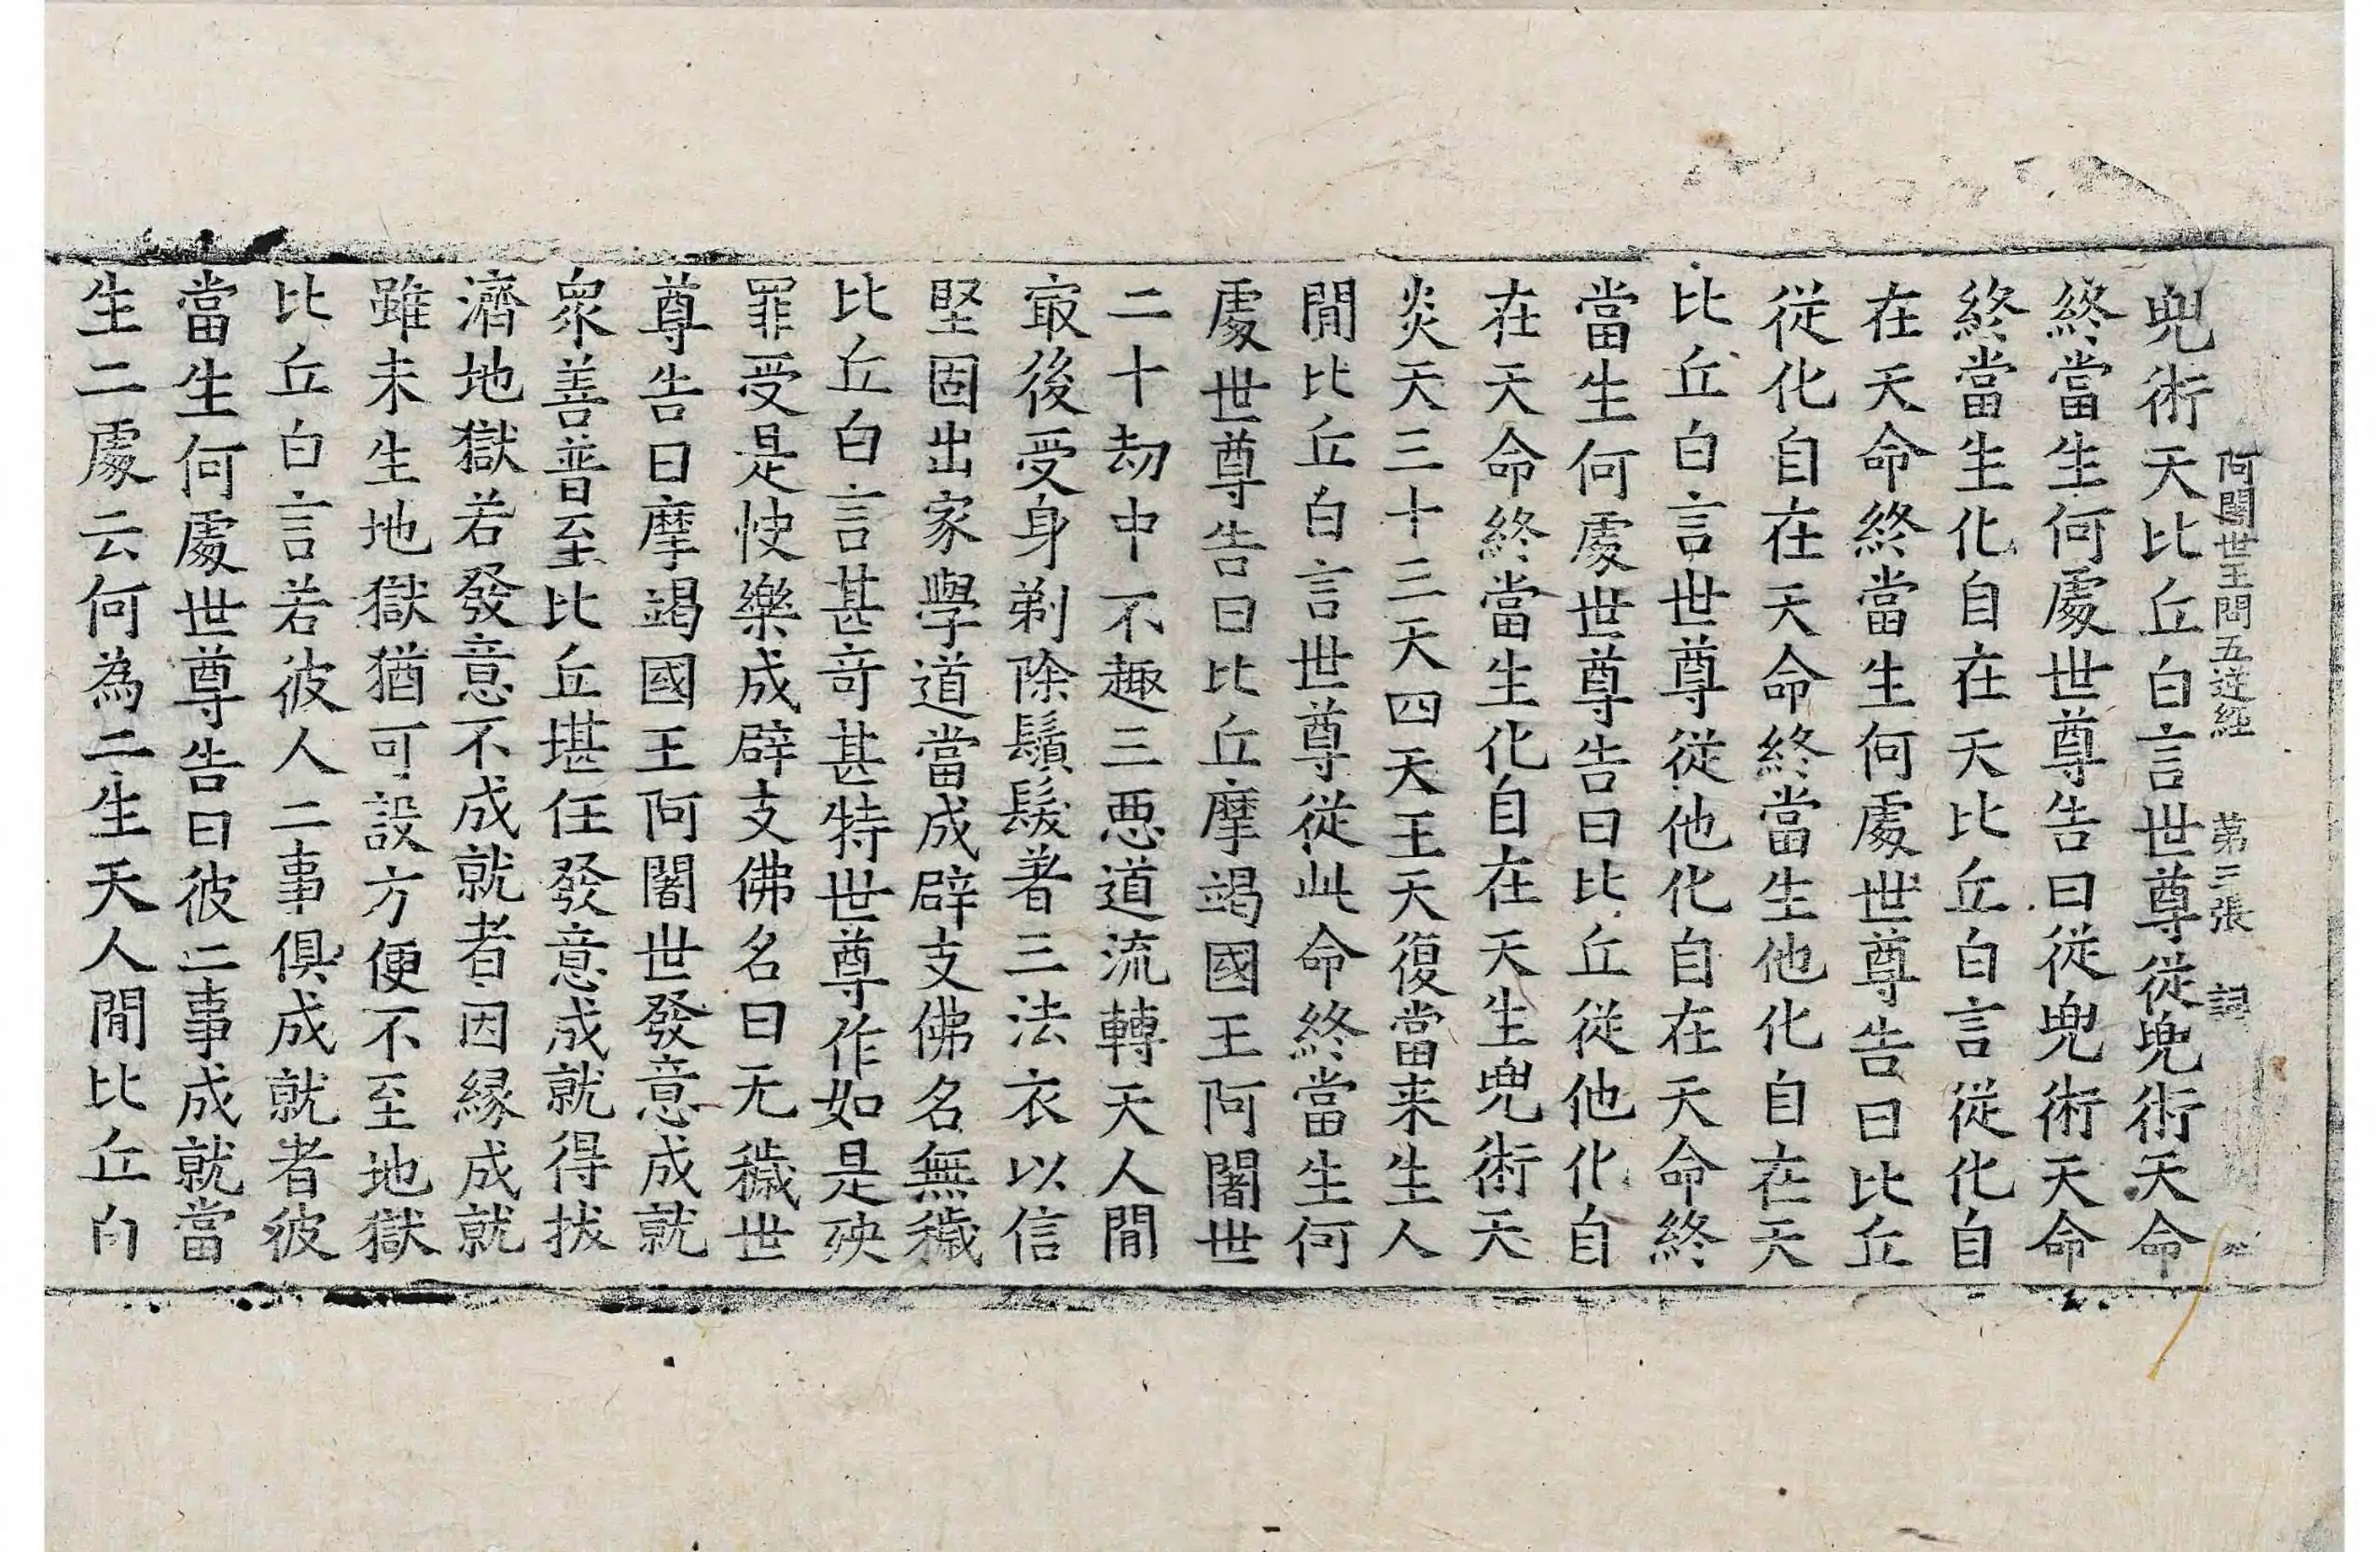 阿闍世王問五逆經 第三張 詞
兜術天比丘白言世尊從兜術天命
終當生何處世尊告曰從兜術天命
終當生化自在天比丘白言從化自
在天命終當生何處世尊告曰比丘
從化自在天命終當生他化自在天
比丘白言世尊從他化自在天命終
當生何處世尊告曰比丘從他化自
在天命終當生化自在天生兜術天
炎天三十三天四天王天復當来生人
間比丘白言世尊從此命終當生何
處世尊告曰比丘摩竭國王阿闍世
二十劫中不趣三惡道流轉天人間
㝡後受身剃除鬚髮著三法衣以信
堅固出家學道當成辟支佛名無穢
比丘白言甚奇甚特世尊作如是殃
罪受是快樂成辟支佛名曰无穢世
尊告曰摩竭國王阿闍世發意成就
衆善普至比丘堪任發意成就得拔
濟地獄若發意不成就者因縁成就
雖未生地獄猶可設方便不至地獄
比丘白言若彼人二事俱成就者彼
當生何處世尊告曰彼二事成就當
生二處云何為二生天人間比丘白